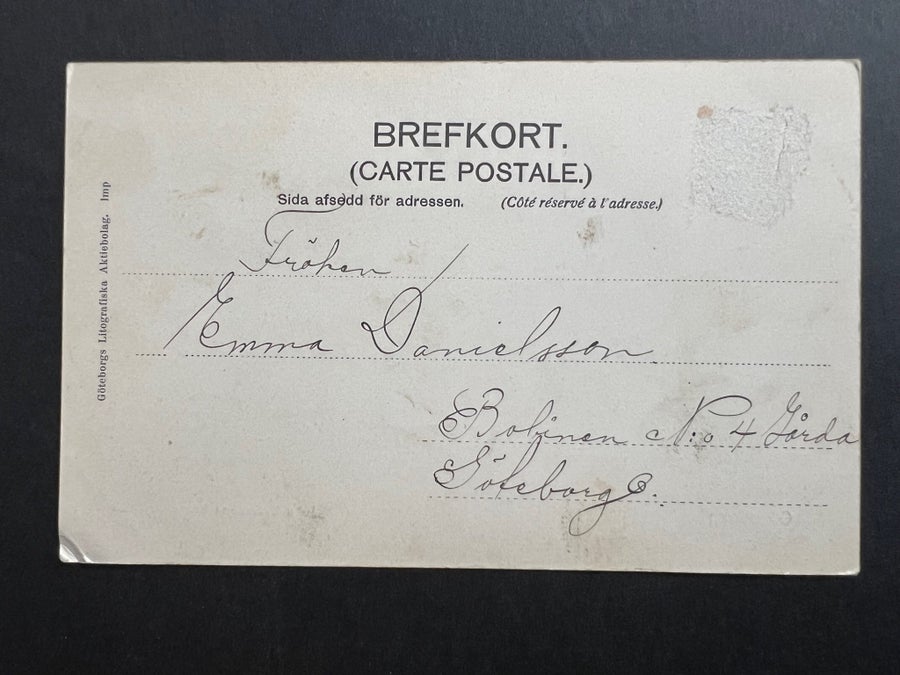 BREFKORT.
(CARTE POSTALE.)
Sida afsedd för adressen. (Côté réservé à l'adresse.)
Fröken
Emma Danielsson
Bobinen N:o 4 Gårda
Göteborg
Göteborgs Litografiska Aktiebolag. Imp